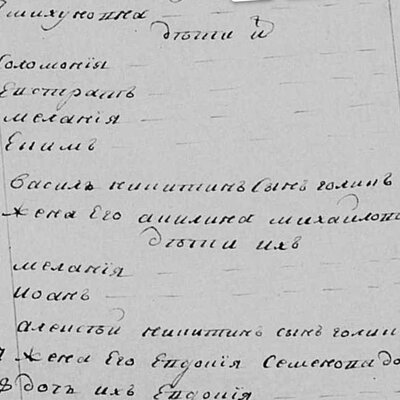 дѣти й
Соломонія
Евстратъ
меланія
Ефимъ
Василь никитинъ сынъ голинъ
Жена Его акилина михайлова
дѣти ихъ
меланія
Иоанъ
алеѯѣй никитинъ сынъ голин
Жена Его Евдокія Семенова до
дочь ихъ Евдокія